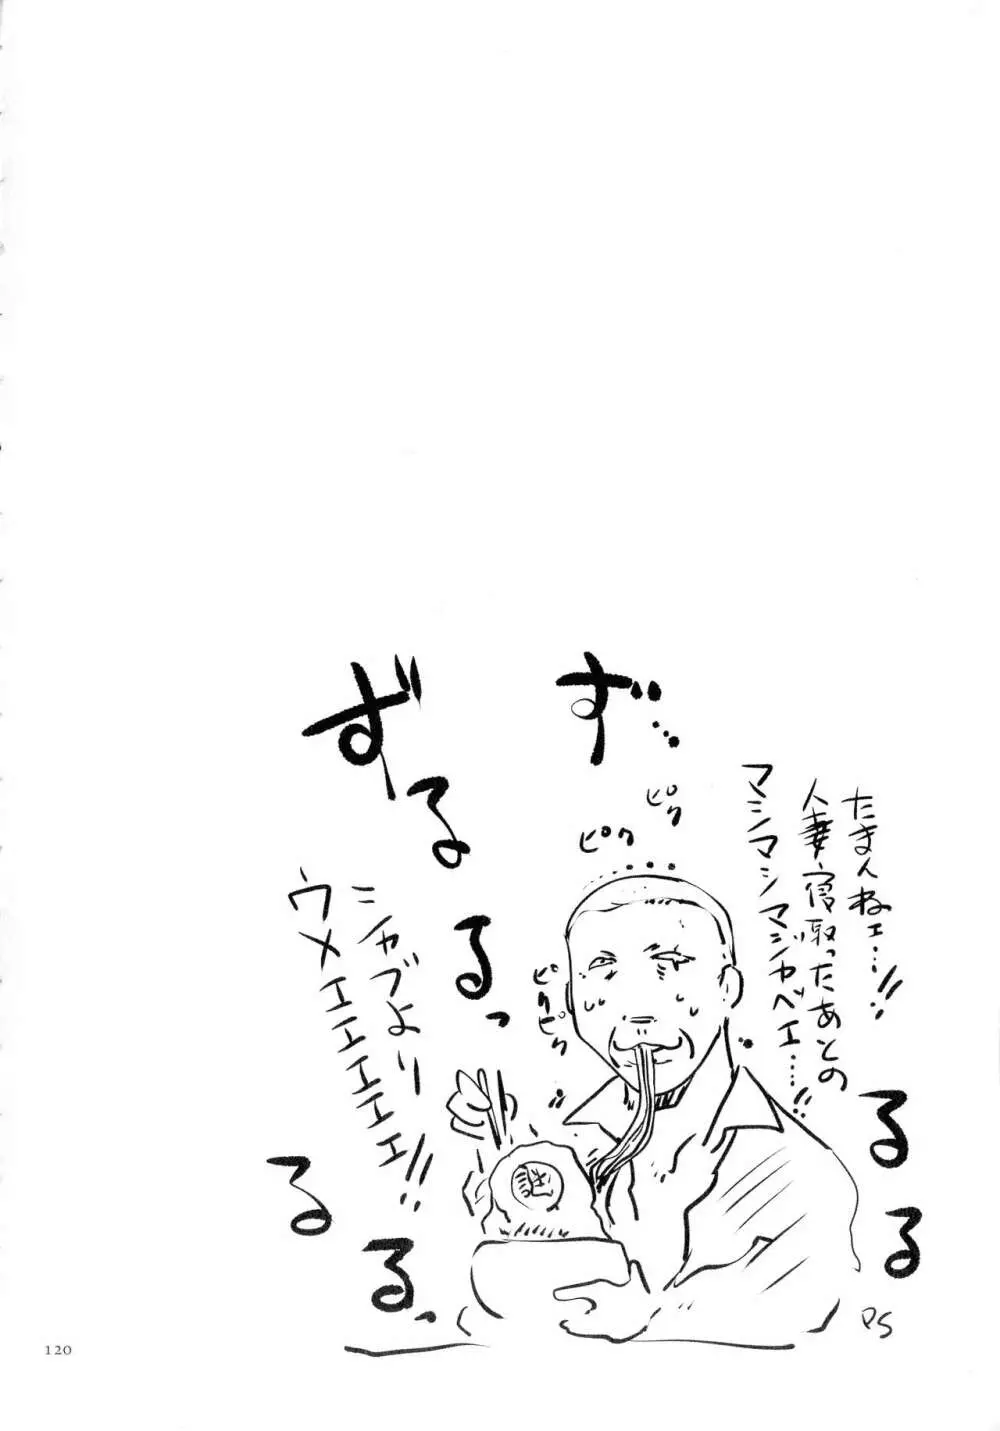 ず…
ずるるっ
ピク
ピク
ピクピク
たまんねェ…!!
人妻寝取ったあとの
マシマシマジヤベエ…!!
シャブより
ウメエエエエエエ!!
るる
るるっ
謎
PS
120